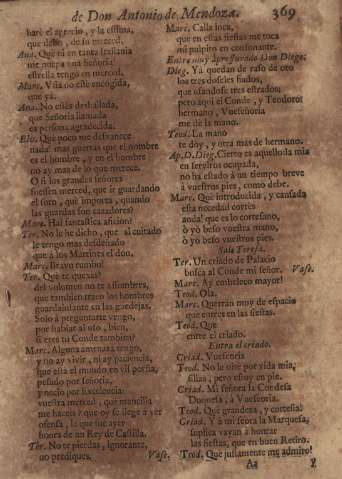 de Don Antonio de Mendoza. 369
harè el agravio, y la estima,
que desse, de su merced.
Ana. Que tu en tanta
me niegue una Señoria
estrella tengo en merced.
Marc. Viña no estè encogida,
que ya.
Ana. No estès deshallada,
que Señoria llamada
es persona agradecida.
Elo. Què poco me desvanece
nada! mas guerras que el nombre
es el hombre, y en el hombre
no ay mas de lo que merece.
O si los grandes señores
fuessen merced, que ir guardando
el soto, què importa, quando
las guardas son cazadores?
Marc. Hai fantastica aficion!
Ter. No le he dicho, que al cuitado
le tengo mas desdeñado
que à los Martires el don.
Marc. Bravo rumbo!
Teo. Que te quexas?
del volumen no te assombres,
que tambien traen los hombres
guardainfante en las guedejas.
Solo à preguntarte vengo,
por hablar al oìdo, bien,
si eres tu Conde tambien?
Marc. Alguna amenaza traygo,
y no ay vivir, ni ay paciencia,
que està el mundo en vil porfia,
pesado por señoria,
y necio por Excelencia:
vuestra merced, què mancilla
me haceis? que oy se llegue à ver
ofensa, la que fue ayer
honra de un Rey de Castilla.
Ter. No te pierdas, ignorante,
no prediques. Vase.
Marc. Calla loca,
que en estas fiestas me toca
mi pulpito en consonante.
Entre muy apressurado Don Diego.
Dieg. Ya quedan de raso de oro
los tres doseles fiados,
que usandose tres estrados:
pero aqui el Conde, y Teodoro?
hermano, Vueseñoria
me dè la mano.
Teod. La mano
te doy, y otra mas de hermano.
Ap. D. Dieg. Cierto es aquello da mia
en serviros ocupada,
no ha estado à un tiempo breve
à vuestros pies, como debe.
Marc. Què introducida, y cansada
esta necedad cortès
anda! que es lo cortesano,
ò yo beso vuestra mano,
ò yo beso vuestros pies.
Sale Teresa.
Ter. Un criado de Palacio
busca al Conde mi señor. Vase.
Marc. Ay embeleco mayor!
Teod. Ola.
Marc. Querràn muy de espacio
que entre en las fiestas.
Teod. Que
entre el criado.
Entra el criado.
Criad. Vueseñoria
Teod. No le oìste por vida mia,
sillas, pero estoy en pie.
Criad. Mi señora la Condesa
Duquesa, à Vueseñoria.
Teod. Què grandeza, y cortesia!
Criad. Y à mi señora la Marquesa,
suplica vayan à honrar
las fiestas, que en buen Retiro.
Teod. Què justamente me admiro!
Aa